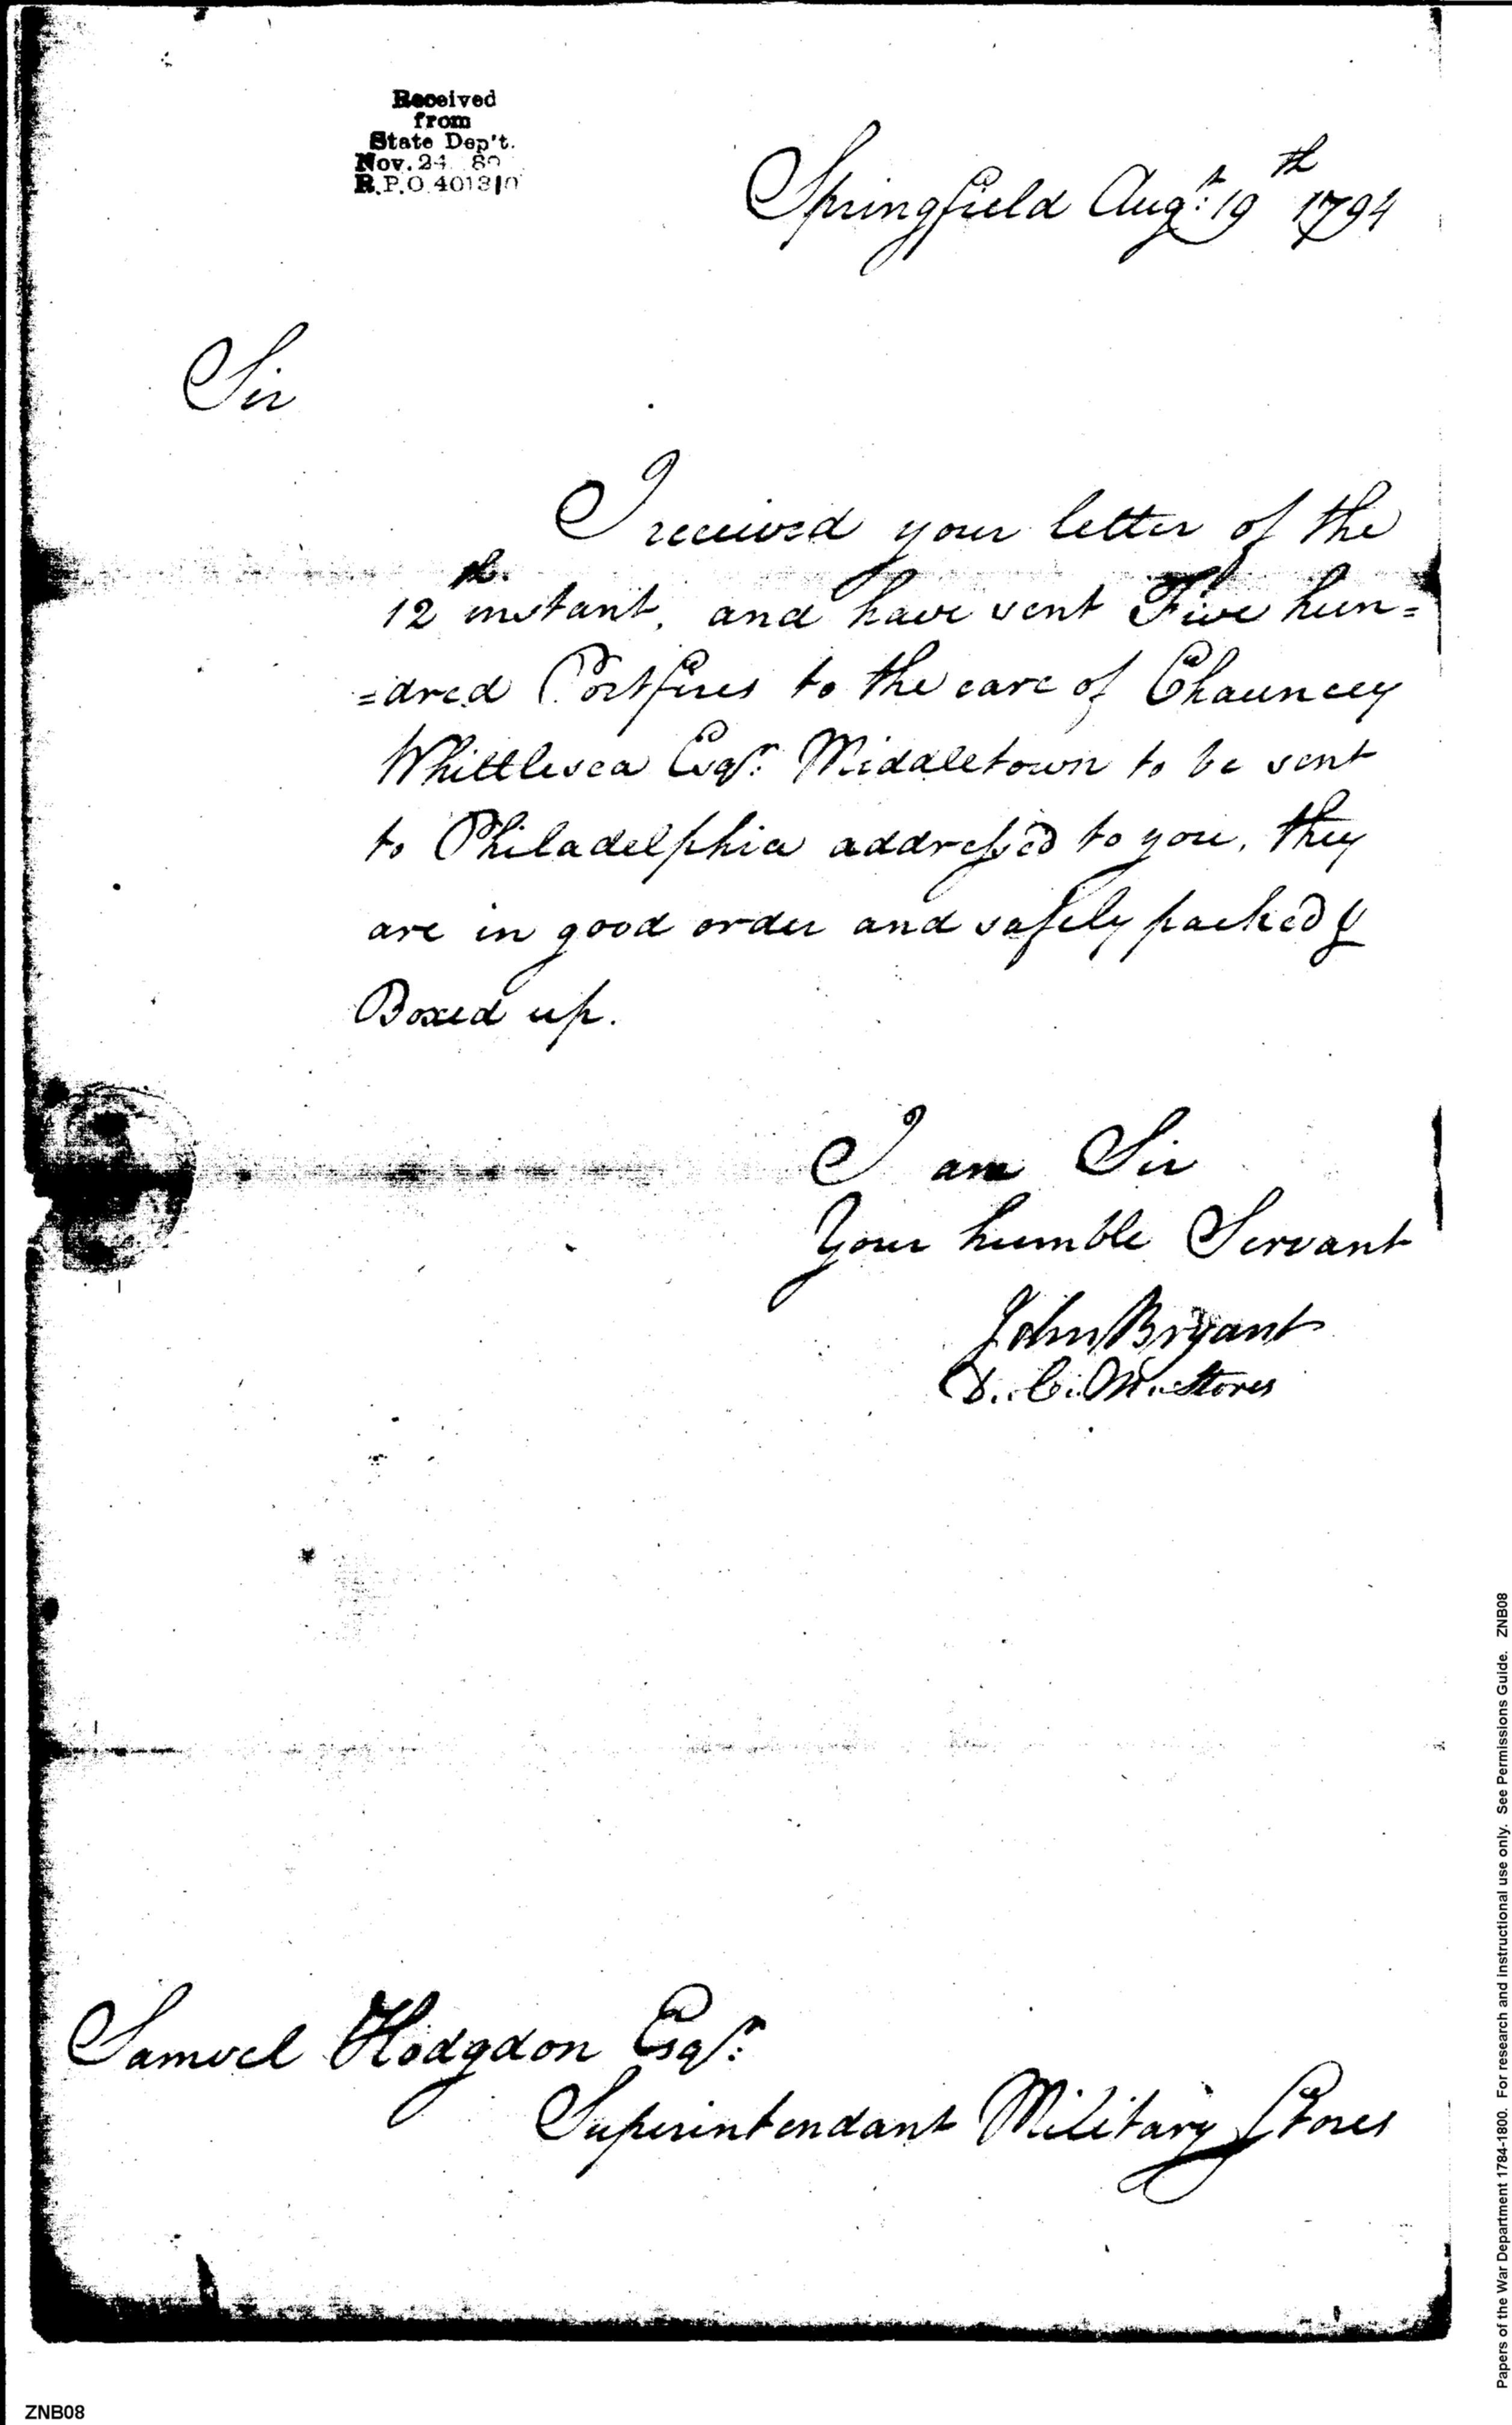 Received
from
State Dep't.
Nov. 24 80
R.P.O. 401310
Springfield Augt: 19th 1794
Sir
I received your letter of the
12th. instant, and have sent Five hun=
=dred Portfires to the care of Chauncey
Whittlesea Esqr: Middletown to be sent
to Philadelphia addressed to you, they
are in good order and safely packed &
Boxed up.
I am Sir
Your humble Servant
John Bryant
D. C. M. Stores
Samuel Hodgdon Esqr:
Superintendant Military Stores
Papers of the War Department 1784-1800. For research and instructional use only. See Permissions Guide. ZNB08
ZNB08